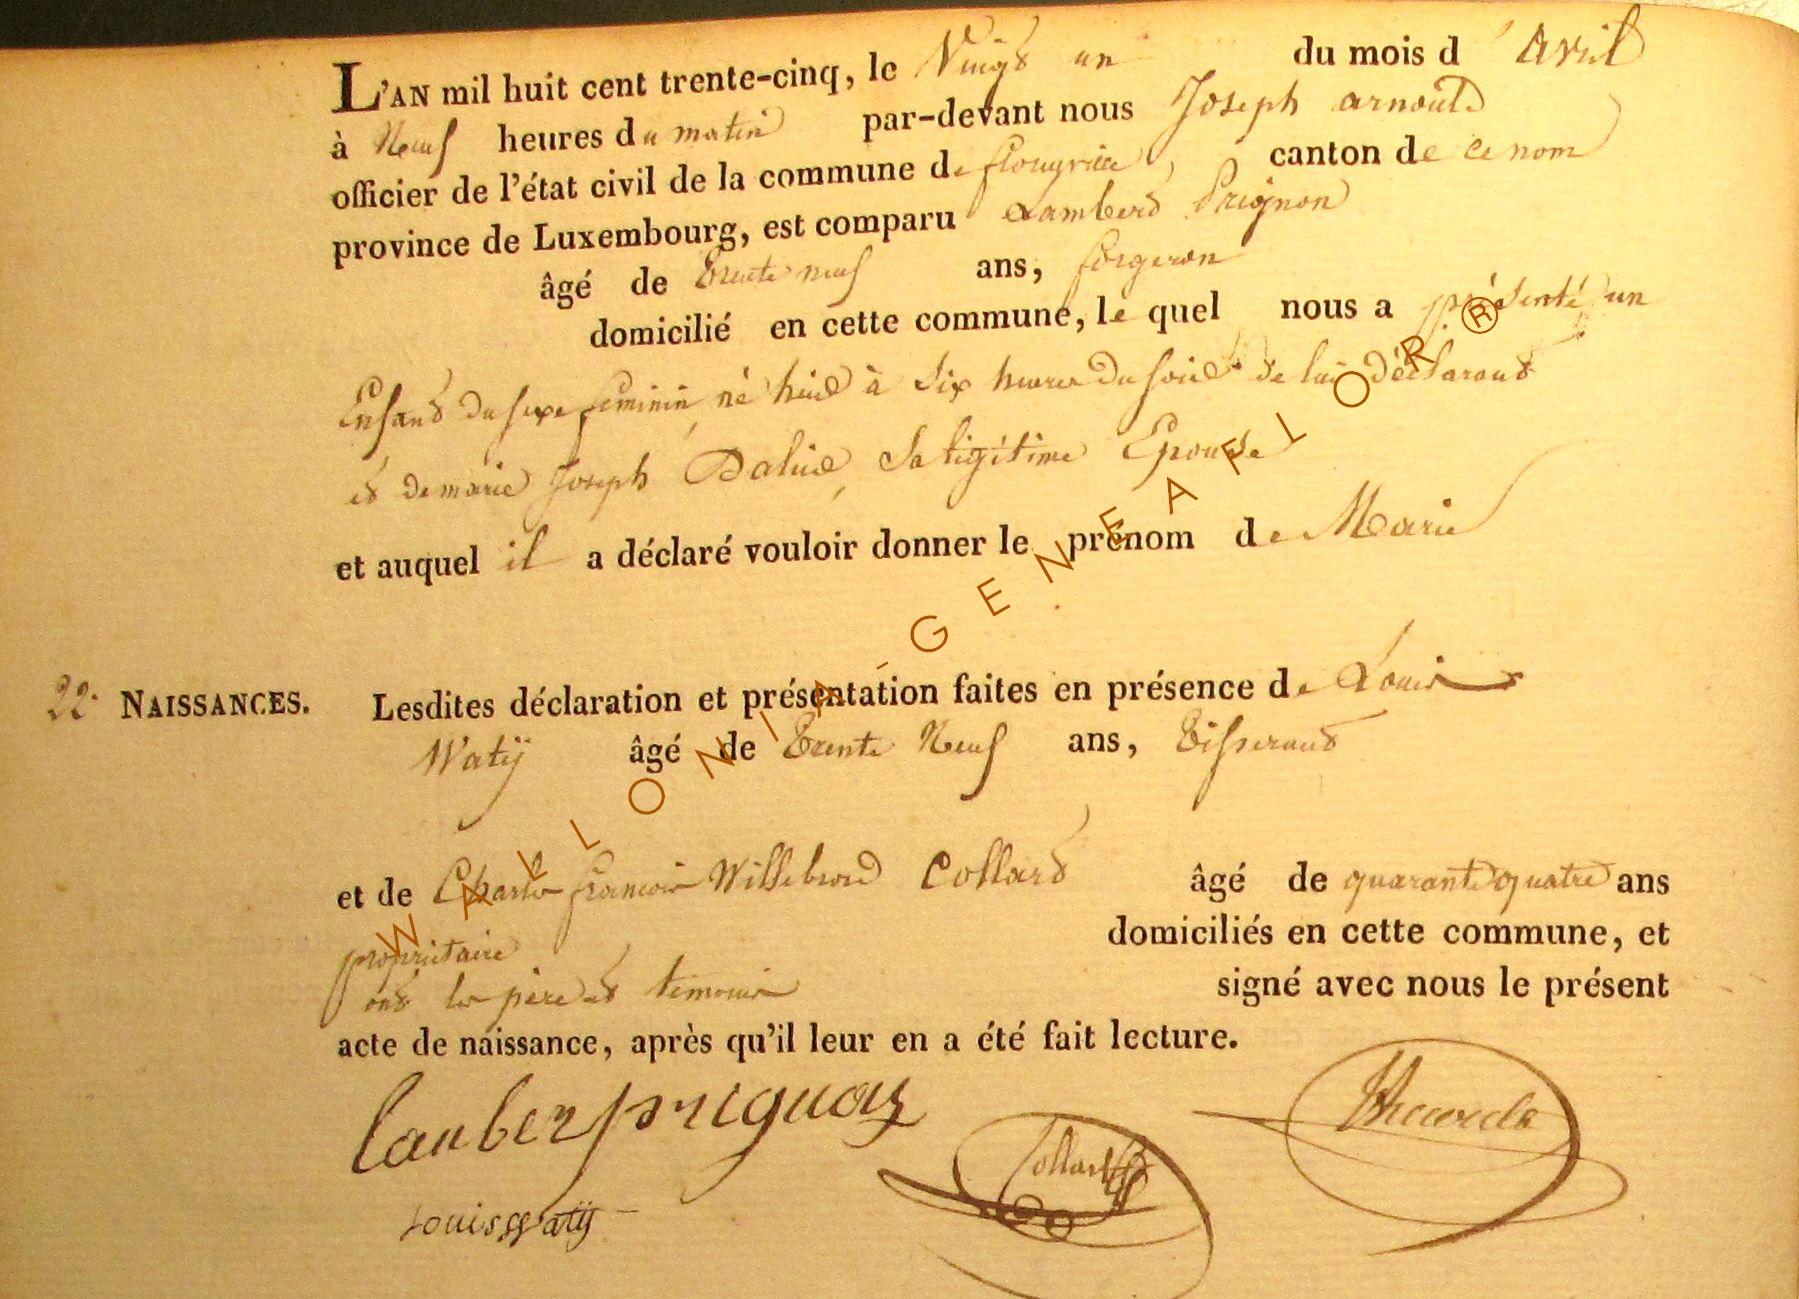 L'AN mil huit cent trente-cinq, le Vingt un du mois d'avril
à Neuf heures du matin par-devant nous Joseph arnould
officier de l'état civil de la commune de canton de ce nom
province de Luxembourg, est comparu Lambert Prignon
âgé de trente neuf ans, forgeron
domicilié en cette commune, le quel nous a présenté un
Enfant du sexe feminin, né hier à six heures du soir de lui déclarant
et de marie Joseph sa légitime Epouse
et auquel il a déclaré vouloir donner le prénom de Marie
22. NAISSANCES. Lesdites déclaration et présentation faites en présence de Louis
Watÿ âgé de trente Neuf ans, Tisserand
et de Charles françois Willebrord Collard âgé de quarante quatre ans
propriétaire domiciliés en cette commune, et
ont les père et temoins signé avec nous le présent
acte de naissance, après qu'il leur en a été fait lecture.
lamber prignon
Collard
Louis Watÿ
WALLONIA-GENEAFLOR®